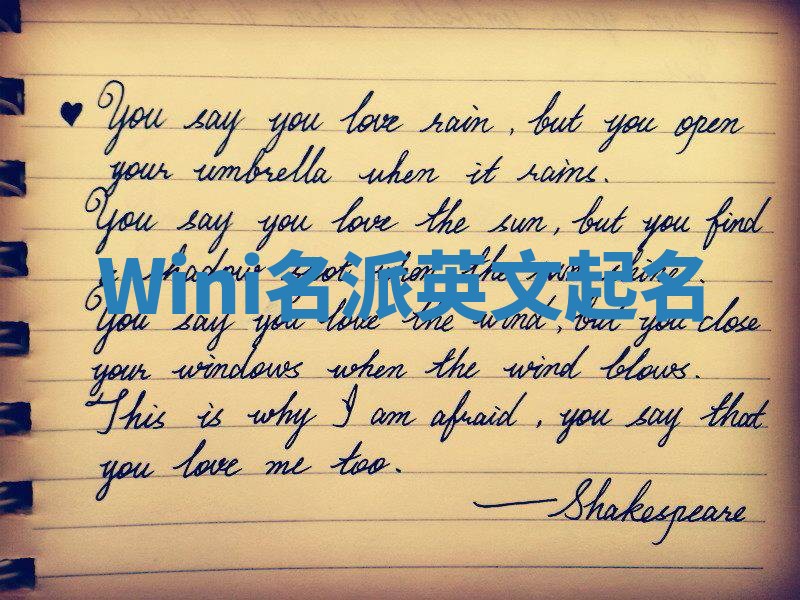 ♥ You say you love rain, but you open
your umbrella when it rains.
You say you love the sun, but you find
a shadow spot when the sun shine.
Wini名派英文起名
You say you love the wind, but you close
your windows when the wind blows.
This is why I am afraid, you say that
you love me too.
—Shakespeare